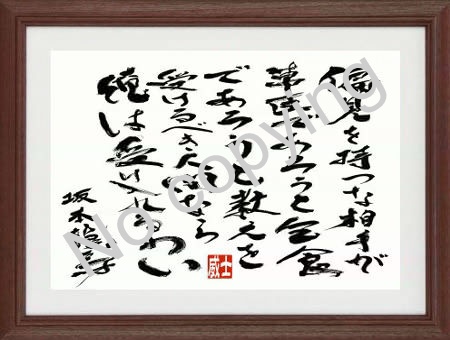 偏見を持つな相手が
幕臣であろうと乞食
であろうと教えを
受けるべき人間なら
俺は受け入れるわい
坂本龍馬
士
威
No copying